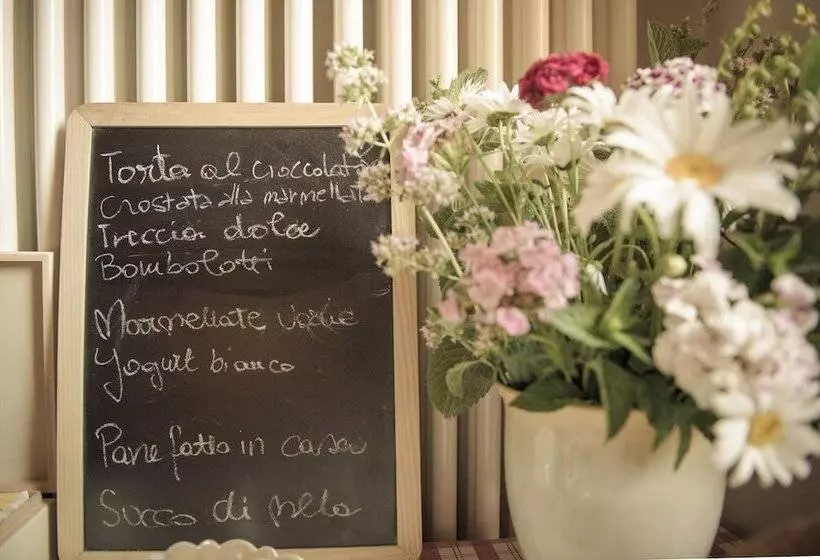 Torta al cioccolato
Crostata alla marmellata
Treccia dolce
Bombolotti
Marmellate varie
Yogurt bianco
Pane fatto in casa
Succo di mela